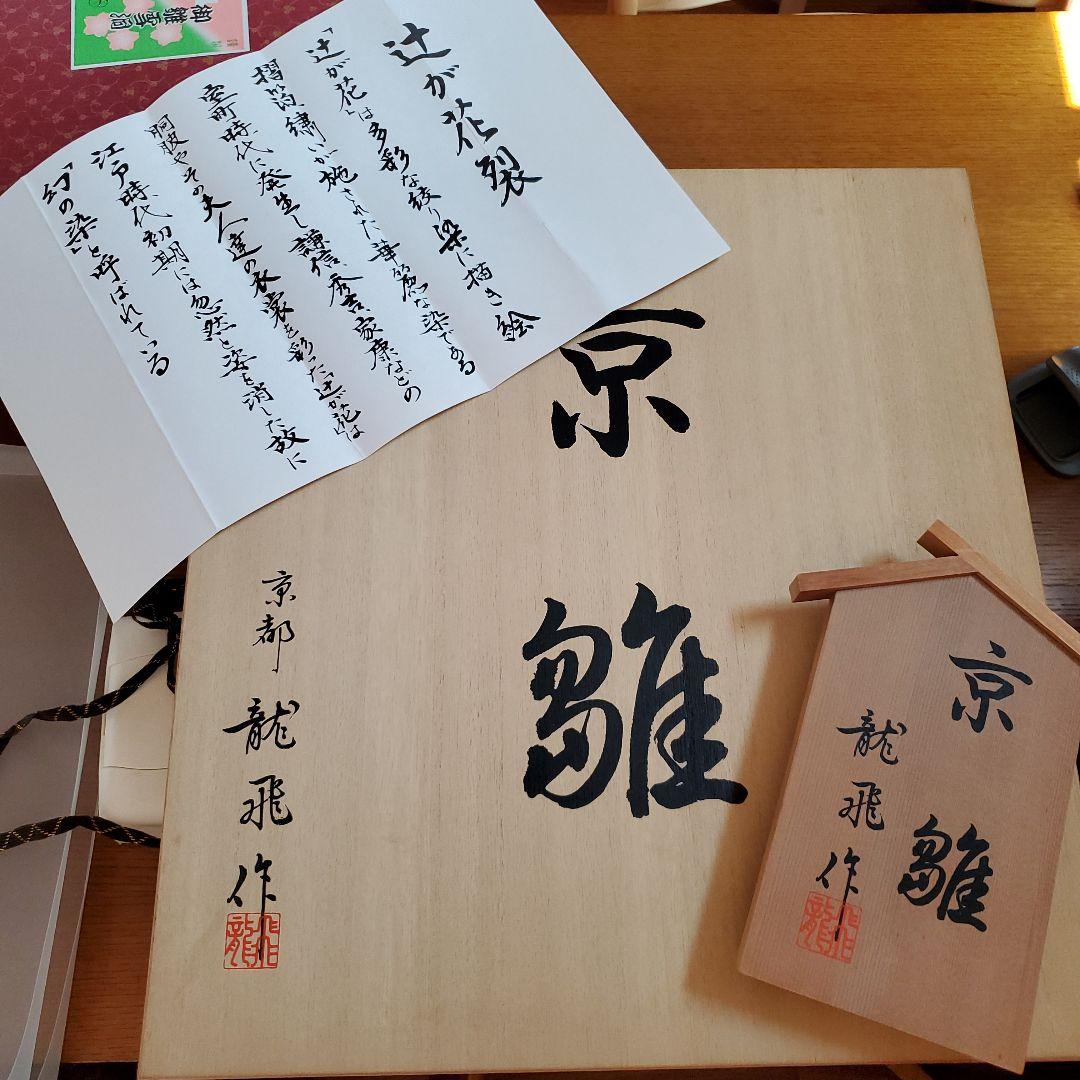 辻が花裂
「辻が花」は多彩な絞り染に描き絵
摺箔、繍いが施された華麗な染である
室町時代に発生し謙信、秀吉、家康などの
胴服やその夫人達の衣裳を彩った「辻が花」は
江戸時代初期には忽然と姿を消した故に
「幻の染」と呼ばれている
京雛
京都 龍飛作
龍飛作
京雛
龍飛作
龍飛作
御雛寺洞